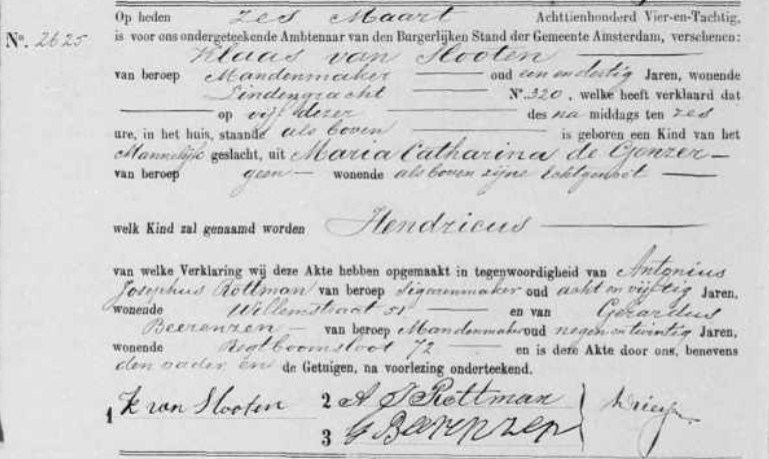 Op heden zes Maart Achttienhonderd Vier-en-Tachtig,
Nº. 2625 is voor ons ondergeteekende Ambtenaar van den Burgerlijken Stand der Gemeente Amsterdam, verschenen:
Klaas van Slooten
van beroep Mandenmaker oud een en dertig Jaren, wonende
Lindengracht Nº. 320, welke heeft verklaard dat
op vijf dezer des na middags ten zes
ure, in het huis, staande als boven is geboren een Kind van het
Mannelijk geslacht, uit Maria Catharina de Gonzer
van beroep geen wonende als boven zijne Echtgenoot
welk Kind zal genaamd worden Hendricus
van welke Verklaring wij deze Akte hebben opgemaakt in tegenwoordigheid van Antonius
Josephus Rottman van beroep Sigarenmaker oud acht en vijftig Jaren,
wonende Willemstraat 51 en van Gerardus
Beerenzen van beroep Mandenmaker oud negen en twintig Jaren,
wonende Regtboomsloot 72 en is deze Akte door ons, benevens
den vader en de Getuigen, na voorlezing onderteekend.
1 K van Slooten 2 A J Rottman
3 G Beerenzen